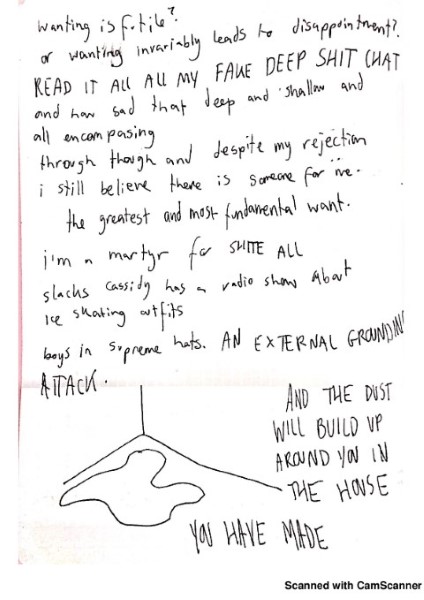 wanting is futile?
or wanting invariably leads to disappointment?
READ IT ALL ALL MY FAKE DEEP SHIT CHAT
and how sad that deep and shallow and
all encompasing
through though and despite my rejection
i still believe there is someone for me.
the greatest and most fundamental want.
i'm a martyr for SHITE ALL
slacks cassidy has a radio show about
ice skating outfits
boys in supreme hats. AN EXTERNAL GROUNDING
ATTACK.
AND THE DUST
WILL BUILD UP
AROUND YOU IN
THE HOUSE
YOU HAVE MADE
Scanned with CamScanner